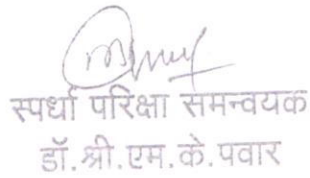 स्पर्धा परिक्षा समन्वयक
डॉ.श्री.एम.के.पवार